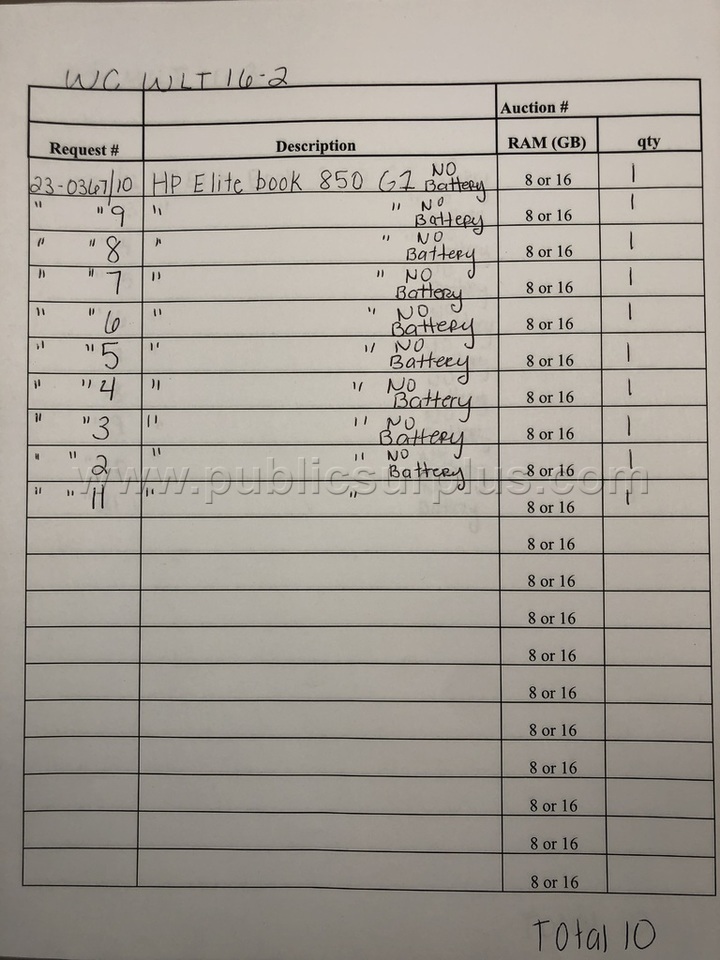 WC WLT 16-2
Auction #
Request # Description RAM (GB) qty
23-0367/10 HP Elite book 850 G1 NO Battery 8 or 16 1
" " 9 " " NO Battery 8 or 16 1
" " 8 " " NO Battery 8 or 16 1
" " 7 " " NO Battery 8 or 16 1
" " 6 " " NO Battery 8 or 16 1
" " 5 " " NO Battery 8 or 16 1
" " 4 " " NO Battery 8 or 16 1
" " 3 " " NO Battery 8 or 16 1
" " 2 " " NO Battery 8 or 16 1
www.publicsurplus.com
" " 11 " " 8 or 16 1
8 or 16
8 or 16
8 or 16
8 or 16
8 or 16
8 or 16
8 or 16
8 or 16
8 or 16
8 or 16
Total 10